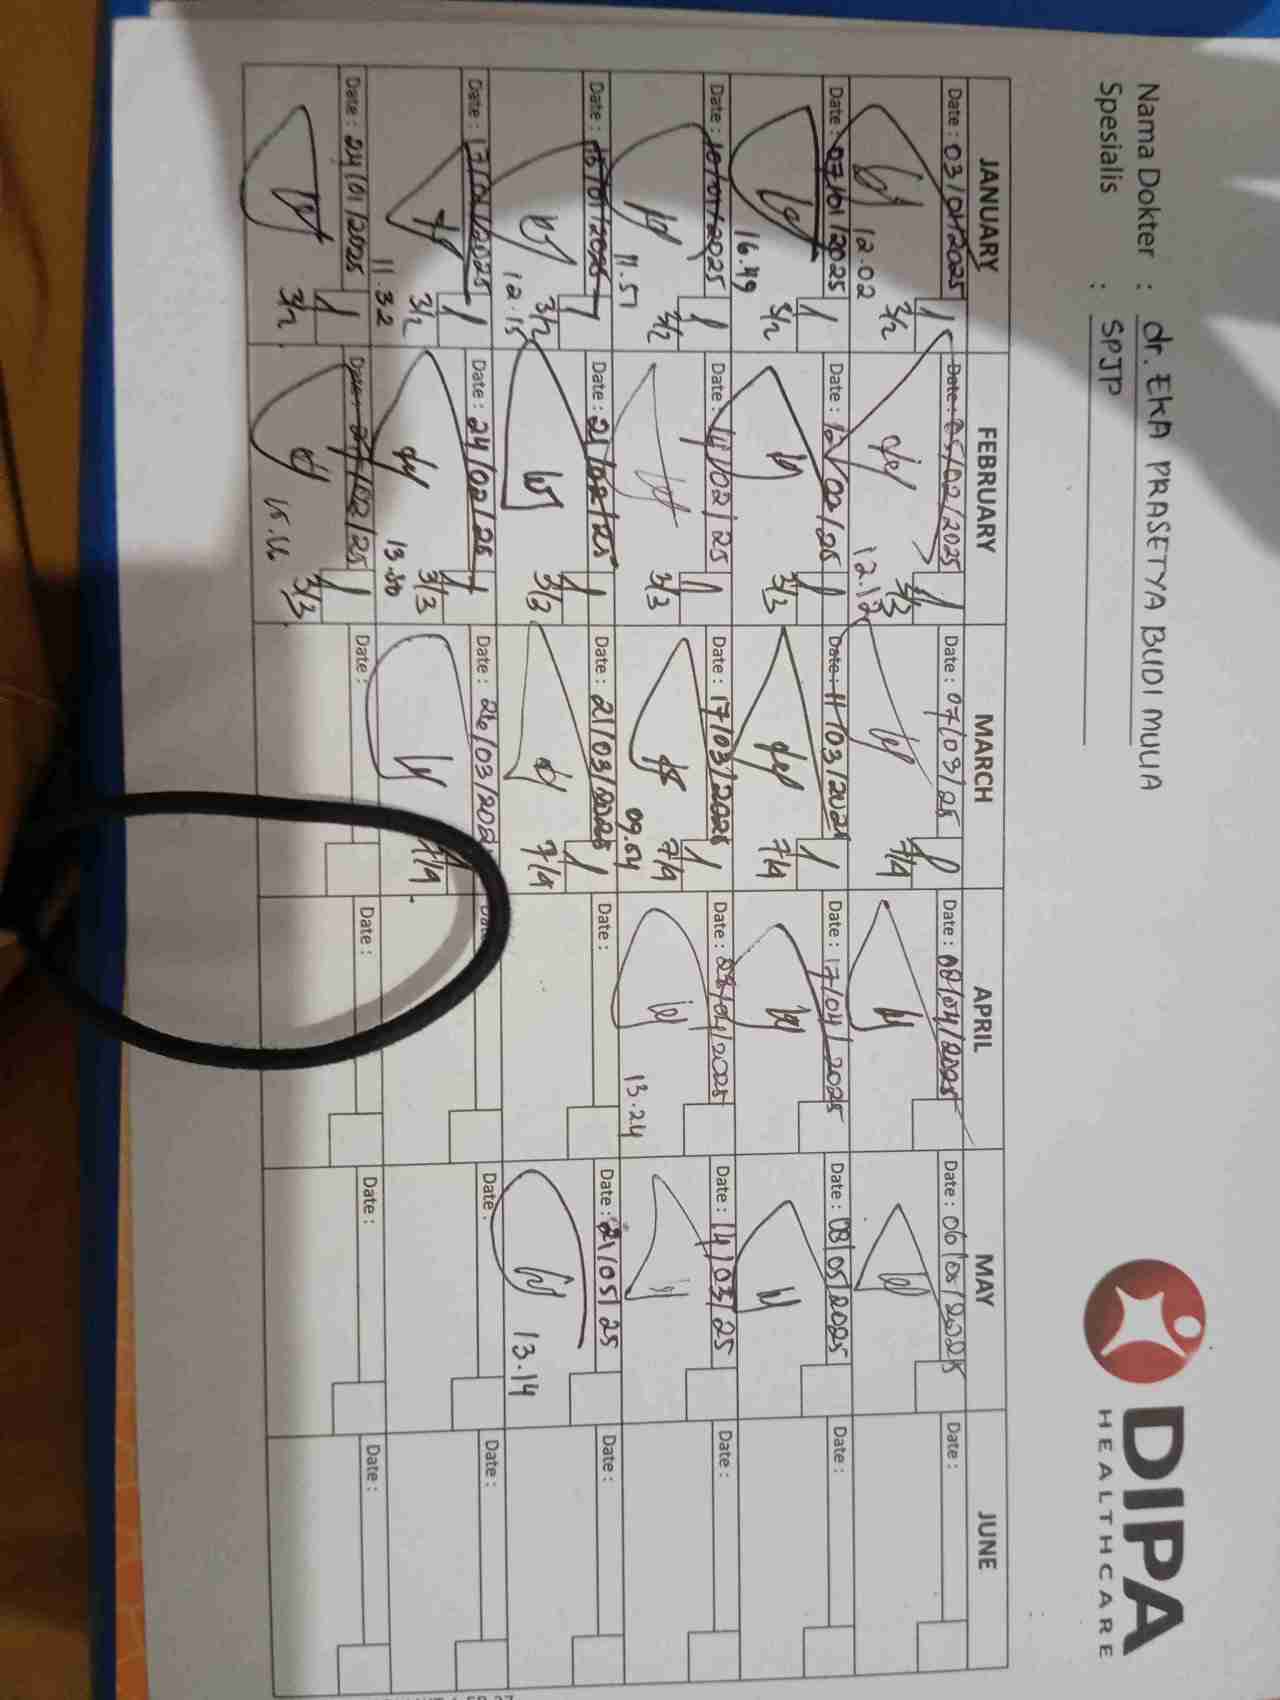 DIPA
HEALTHCARE
Nama Dokter : dr. EKA PRASETYA BUDI MULIA
Spesialis : SPJP
JANUARY FEBRUARY MARCH APRIL MAY JUNE
Date : 03/01/2025 Date : 05/02/2025 Date : 07/03/25 Date : 08/04/2025 Date : 06/05/2025 Date :
12.02 3/2 12.12 3/3 7/4
Date : 07/01/2025 Date : 12/02/25 Date : 11/03/2025 Date : 17/04/2025 Date : 08/05/2025 Date :
16.49 3/2 3/3 7/4
Date : 10/01/2025 Date : 14/02/25 Date : 17/03/2025 Date : 28/04/2025 Date : 14/03/25 Date :
11.51 3/2 3/3 09.54 7/4 13.24
Date : 15/01/2025 Date : 21/02/25 Date : 21/03/2025 Date : Date : 21/05/25 Date :
12.15 3/2 3/3 7/4 13.14
Date : 17/01/2025 Date : 24/02/25 Date : 26/03/202 Date : Date :
11.32 3/2 13.50 3/3 7/4
Date : 24/01/2025 /02/25 Date : Date : Date : Date :
3/2 3/3